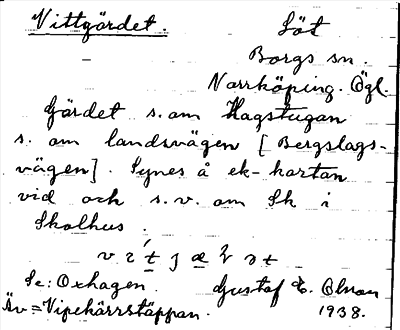 Vittgärdet. Löt
Borgs sn.
Norrköping. Ögl.
Gärdet s.om Hagstugan
s. om landsvägen [Bergslags-
vägen]. Synes å ek-kartan
vid och s.v. om Sk i
Skolhus.
Se: Oxhagen. Gustaf E. Olsson
Äv = Vipekärrstäppan. 1938.